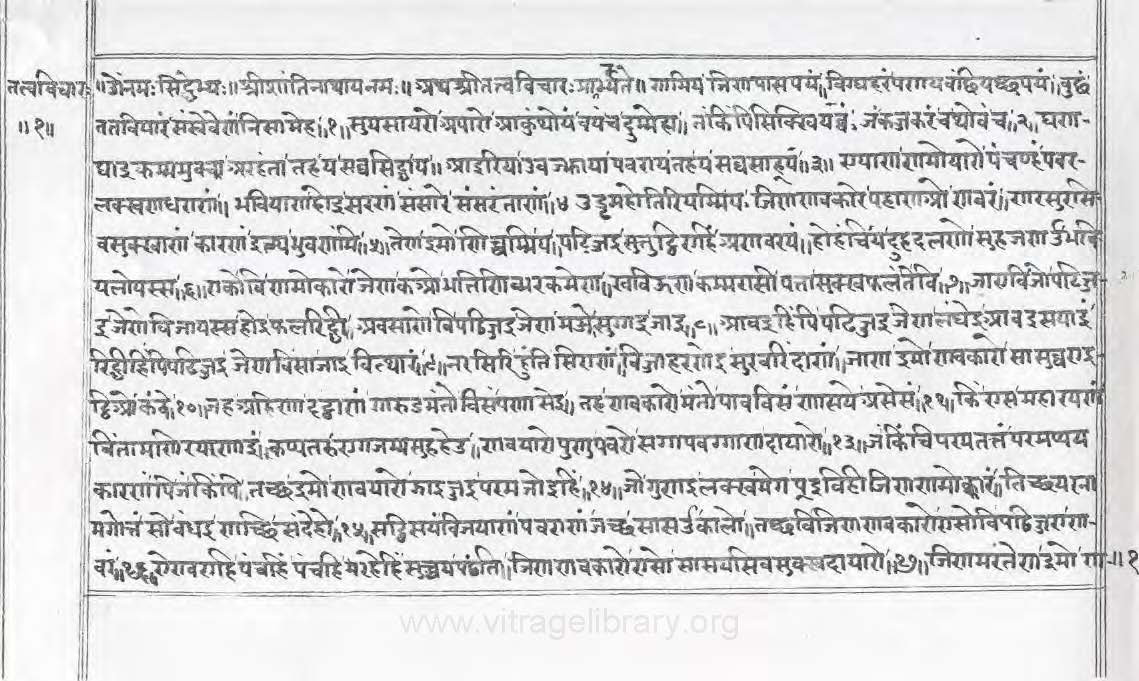 तत्वविचारः ॥ ॐनमः सिद्धेभ्यः ॥ श्रीशांतिनाथायनमः ॥ अथश्रीतत्वविचारःप्रारभ्यते ॥ णमियं जिणपासपयं । विग्घहरंपणयवंछियच्छपयं । वुछं
॥ १ ॥ तत्तवियारं संखेवेणंनिसामेह ॥ १ ॥ सुयसायरोअपारो आऊथोयं जंकज्जकरं वथोवंच ॥ २ ॥ घण
घाइकम्ममुक्का अरहंता तहयसव्वसिद्धाय । आइरियाउवज्झाया पवरायतहय सव्वसाहूय ॥ ३ ॥ पंचण्हंपवर
लक्खणधराणं । भवियाणहोइसरणं संसारे संसरंताणं ॥ ४ उड्ढमहोतिरियम्मिय जिणणवकारो पहाणओ णवरं । णरसुरसि
वसुक्खाणं कारणंइत्थभुवणंमि ॥ ५ ॥ तेणइमोणिच्चम्मिय पढिज्जइसुत्तुट्ठिएहिंअणवरयं । होइंचियदुहदलणो सुहजणउंभवि
यलोयस्स ॥ ६ ॥ एकोविणमोकारो जेणकओभत्तिणिब्भरकमेणा । खविऊण कम्मरासी पत्तासुक्खफलंतेवि ॥ ७ ॥ जाएविजोपढिज्ज
इ जेणोविजायस्सहोइफलरिद्धी । अवसाणेविपढिज्जइ जेणमओसुग्गइंजाइ ॥ ८ ॥ आवइहिंपिपढिज्जइ जेणलंघेइआवइसयाइं
रिद्धीहिंपिपढिज्जइ जेणविसाजाइ वित्थारं ॥ ९ ॥ नरसिरिहुंति सिराणं विज्जाहरणेइसुरवरिंदाणं । जाण इमो णवकारो सासुव्वएइ
ट्ठिओ कंठे ॥ १० ॥ जहअहिणदट्ठाणं गारुडमंतो विसंपणासेइ । तहणवकारोमंतो पावविसं णासयेअसेसं ॥ ११ ॥ किंएसमहारयणं
चिंतामणि कप्पतरु सुहहेउ । णवयारोपुणपवरो सग्गापवग्गाणदायारो ॥ १३ ॥ जंकिंचिपरमतत्तं परमप्पय
कारणंपिजंकिंपि । तच्छइमोणवयारो झाइज्जइपरमजोईहिं ॥ १४ ॥ जोगुणइलक्खमेगं पूइविहीजिणणमोक्कारं । तिच्छयरना
मगोत्तं सोबंधइणाच्छिसंदेहो ॥ १५ ॥ सट्ठिसयंविजयाणं पवराणंजच्छसासउकालो । तच्छविजिणणवकारोएसोविपढिज्जएण
वरं ॥ १६ ॥ पंचहिंपंचहिं भरहेहिंसुच्चयपढंति । जिणणवकारोएसो सासयसिवसुक्खदायारो ॥ १७ ॥ जिणमरंतेणइमो ण ॥ १
www.vitragelibrary.org